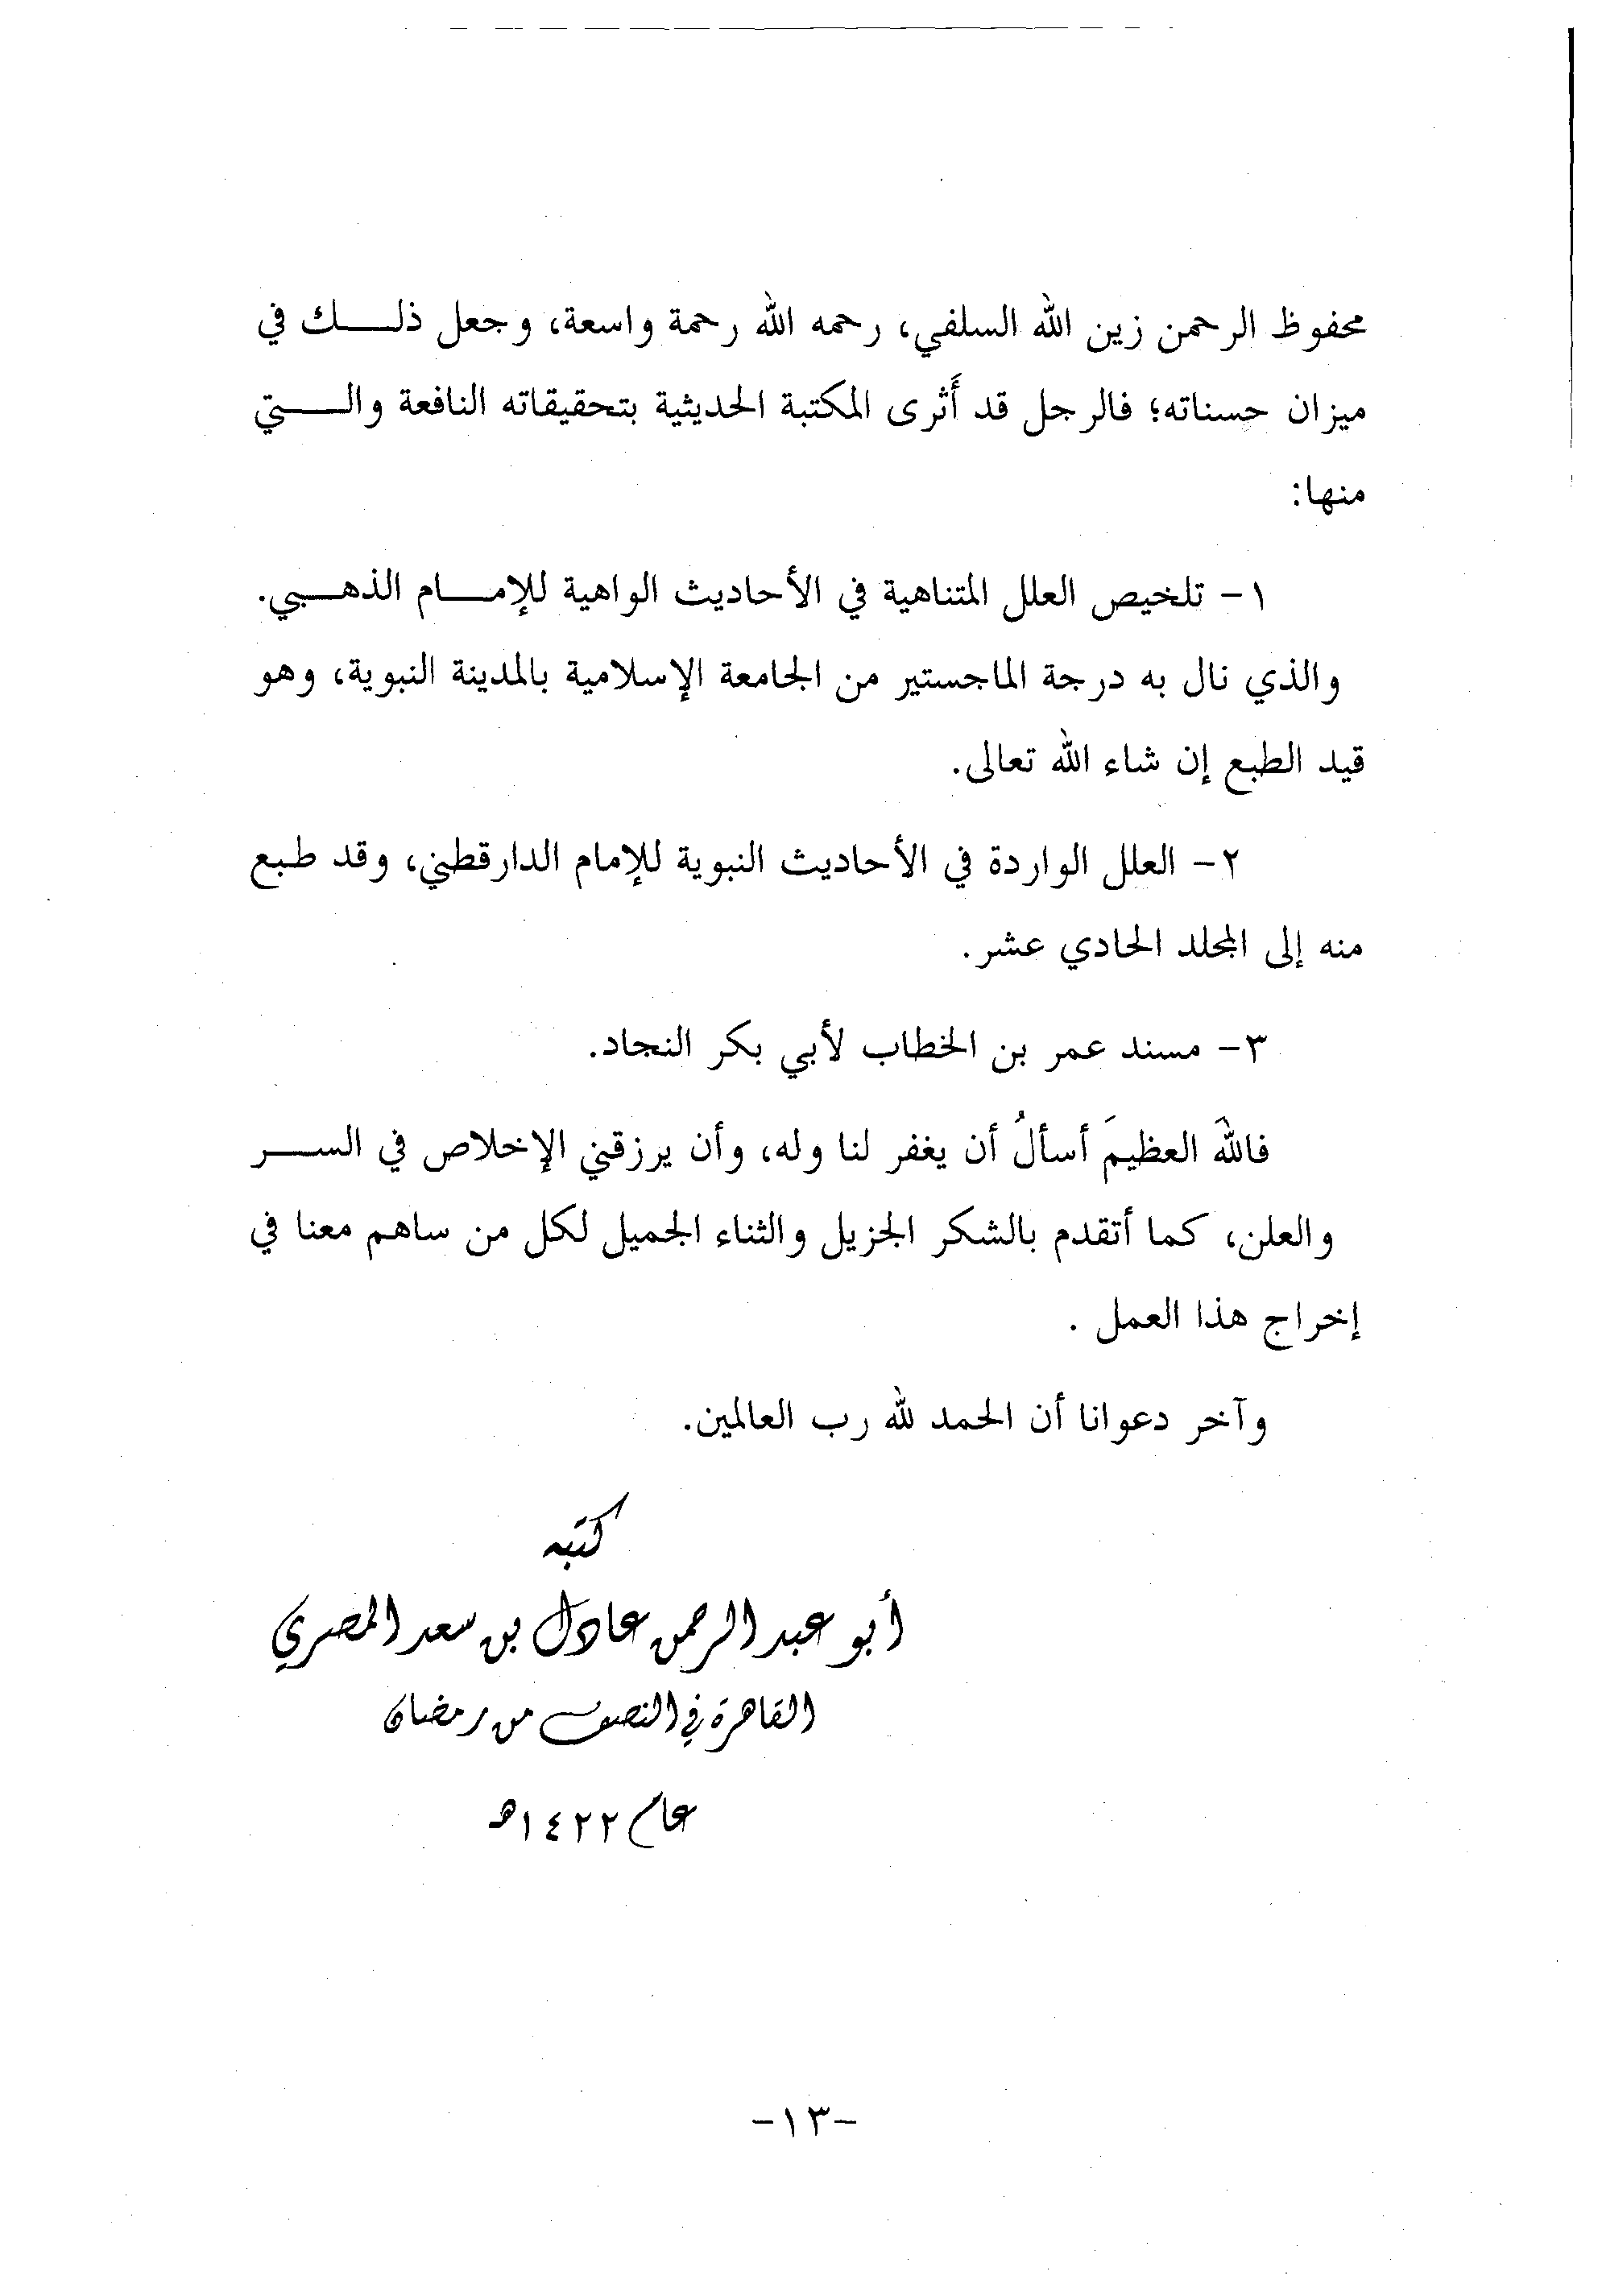 محفوظ الرحمن زين الله السلفي، رحمه الله رحمة واسعة، وجعل ذلـــك في
ميزان حسناته؛ فالرجل قد أَثرى المكتبة الحديثية بتحقيقاته النافعة والـــتي
منها:
١- تلخيص العلل المتناهية في الأحاديث الواهية للإمـــام الذهـــبي.
والذي نال به درجة الماجستير من الجامعة الإسلامية بالمدينة النبوية، وهو
قيد الطبع إن شاء الله تعالى.
٢- العلل الواردة في الأحاديث النبوية للإمام الدارقطني، وقد طبع
منه إلى المجلد الحادي عشر.
٣- مسند عمر بن الخطاب لأبي بكر النجاد.
فاللهَ العظيمَ أسألُ أن يغفر لنا وله، وأن يرزقني الإخلاص في الســـر
والعلن، كما أتقدم بالشكر الجزيل والثناء الجميل لكل من ساهم معنا في
إخراج هذا العمل .
وآخر دعوانا أن الحمد لله رب العالمين.
كتبه
أبو عبد الرحمن عادل بن سعد المصري
القاهرة في النصف من رمضان
عام ١٤٢٢هـ
-١٣-